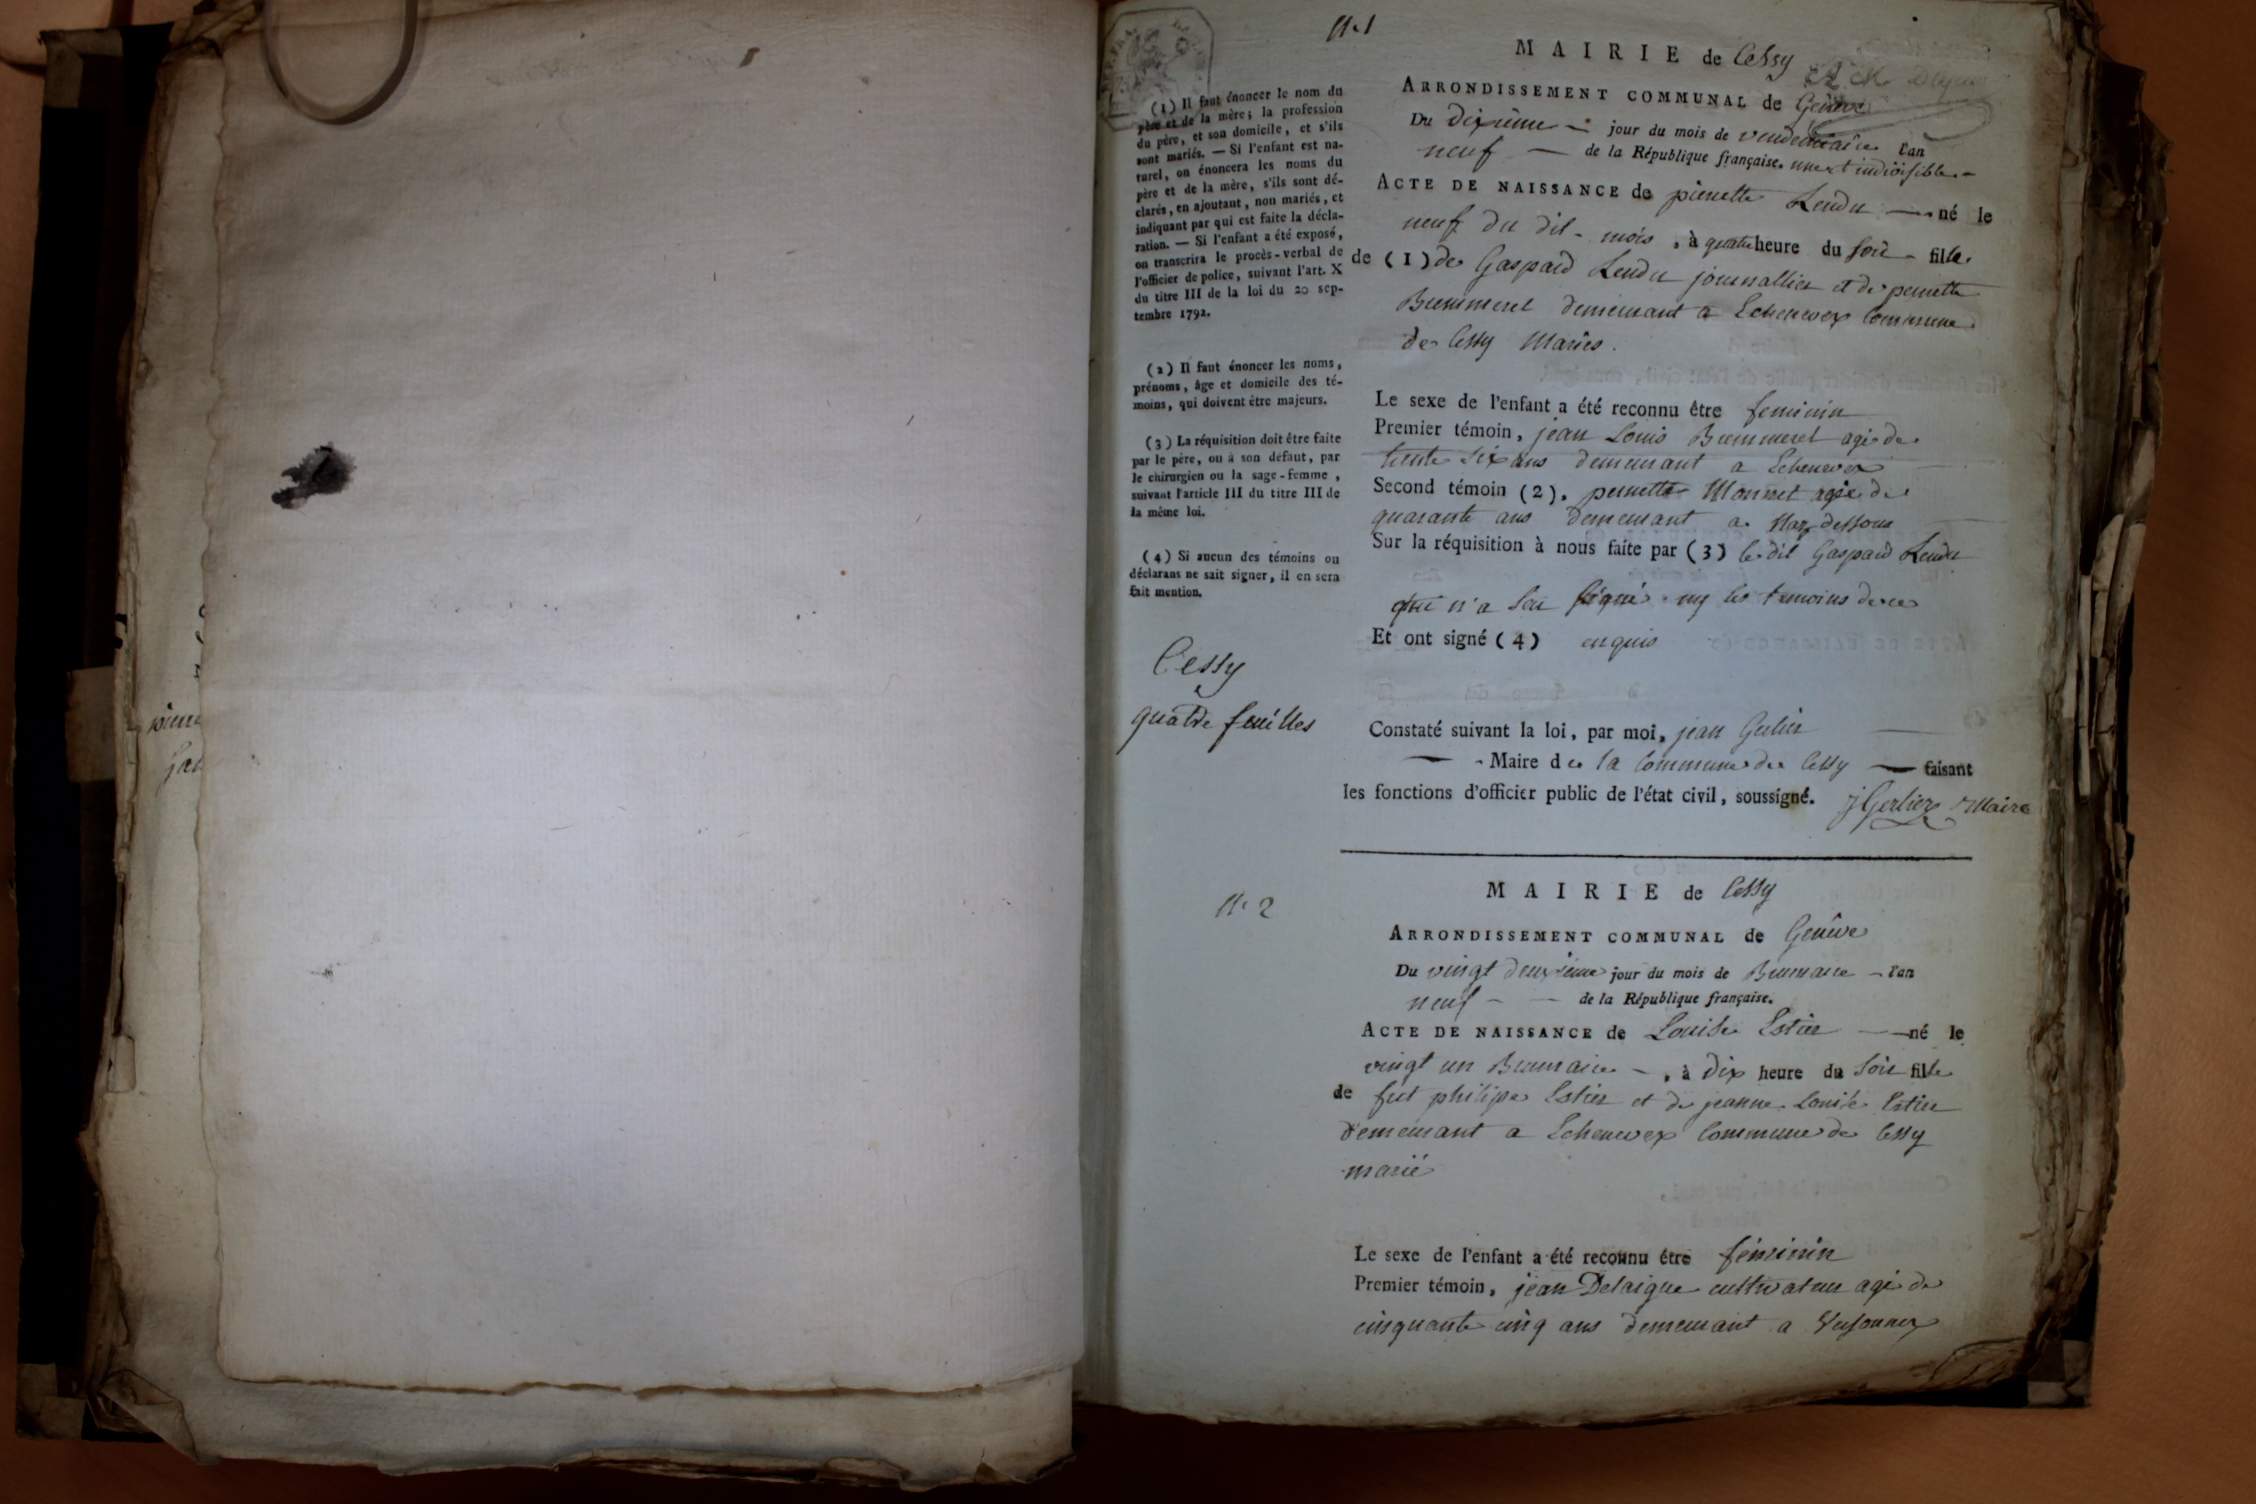 N.1
MAIRIE de Cessy
ARRONDISSEMENT COMMUNAL de Genève
Du dixième jour du mois de vendemiaire l'an
neuf de la République française. une et indivisible.
ACTE DE NAISSANCE de pierrette Lendu né le
neuf du dit mois, à quatre heure du soir fille
de (1) de Gaspard Lendu journallier et de pernette
Brummerel demeurant a Echenevex Commune
de Cessy Mariés.
Le sexe de l'enfant a été reconnu être feminin
Premier témoin, jean Louis Brummerel agé de
trente six ans demeurant a Echenevex
Second témoin (2), pernette Monnet agée de
quarante ans demeurant a Naz dessous
Sur la réquisition à nous faite par (3) le dit Gaspard Lendu
qui n'a seu signé ny les temoins de ce
Et ont signé (4) enquis
Constaté suivant la loi, par moi, jean Gerlier
Maire de la Commune de Cessy faisant
les fonctions d'officier public de l'état civil, soussigné. J Gerlier Maire
(1) Il faut énoncer le nom du
père et de la mère; la profession
du père, et son domicile, et s'ils
sont mariés. — Si l'enfant est na-
turel, on énoncera les noms du
père et de la mère, s'ils sont dé-
clarés, en ajoutant, non mariés, et
indiquant par qui est faite la décla-
ration. — Si l'enfant a été exposé,
on transcrira le procès-verbal de
l'officier de police, suivant l'art. X
du titre III de la loi du 20 sep-
tembre 1792.
(2) Il faut énoncer les noms,
prénoms, âge et domicile des té-
moins, qui doivent être majeurs.
(3) La réquisition doit être faite
par le père, ou à son défaut, par
le chirurgien ou la sage-femme,
suivant l'article III du titre III de
la même loi.
(4) Si aucun des témoins ou
déclarans ne sait signer, il en sera
fait mention.
Cessy
quatre feuilles
N. 2
MAIRIE de Cessy
ARRONDISSEMENT COMMUNAL de Genève
Du vingt deuxieme jour du mois de Brumaire l'an
neuf de la République française.
ACTE DE NAISSANCE de Louise Estier né le
vingt un Brumaire, à dix heure du soir fille
de fut philipe Estier et de jeanne Louise Estier
demeurant a Echenevex Commune de Cessy
marié
Le sexe de l'enfant a été reconnu être féminin
Premier témoin, jean Delaigue cultivateur agé de
cinquante cinq ans demeurant a Versonnex